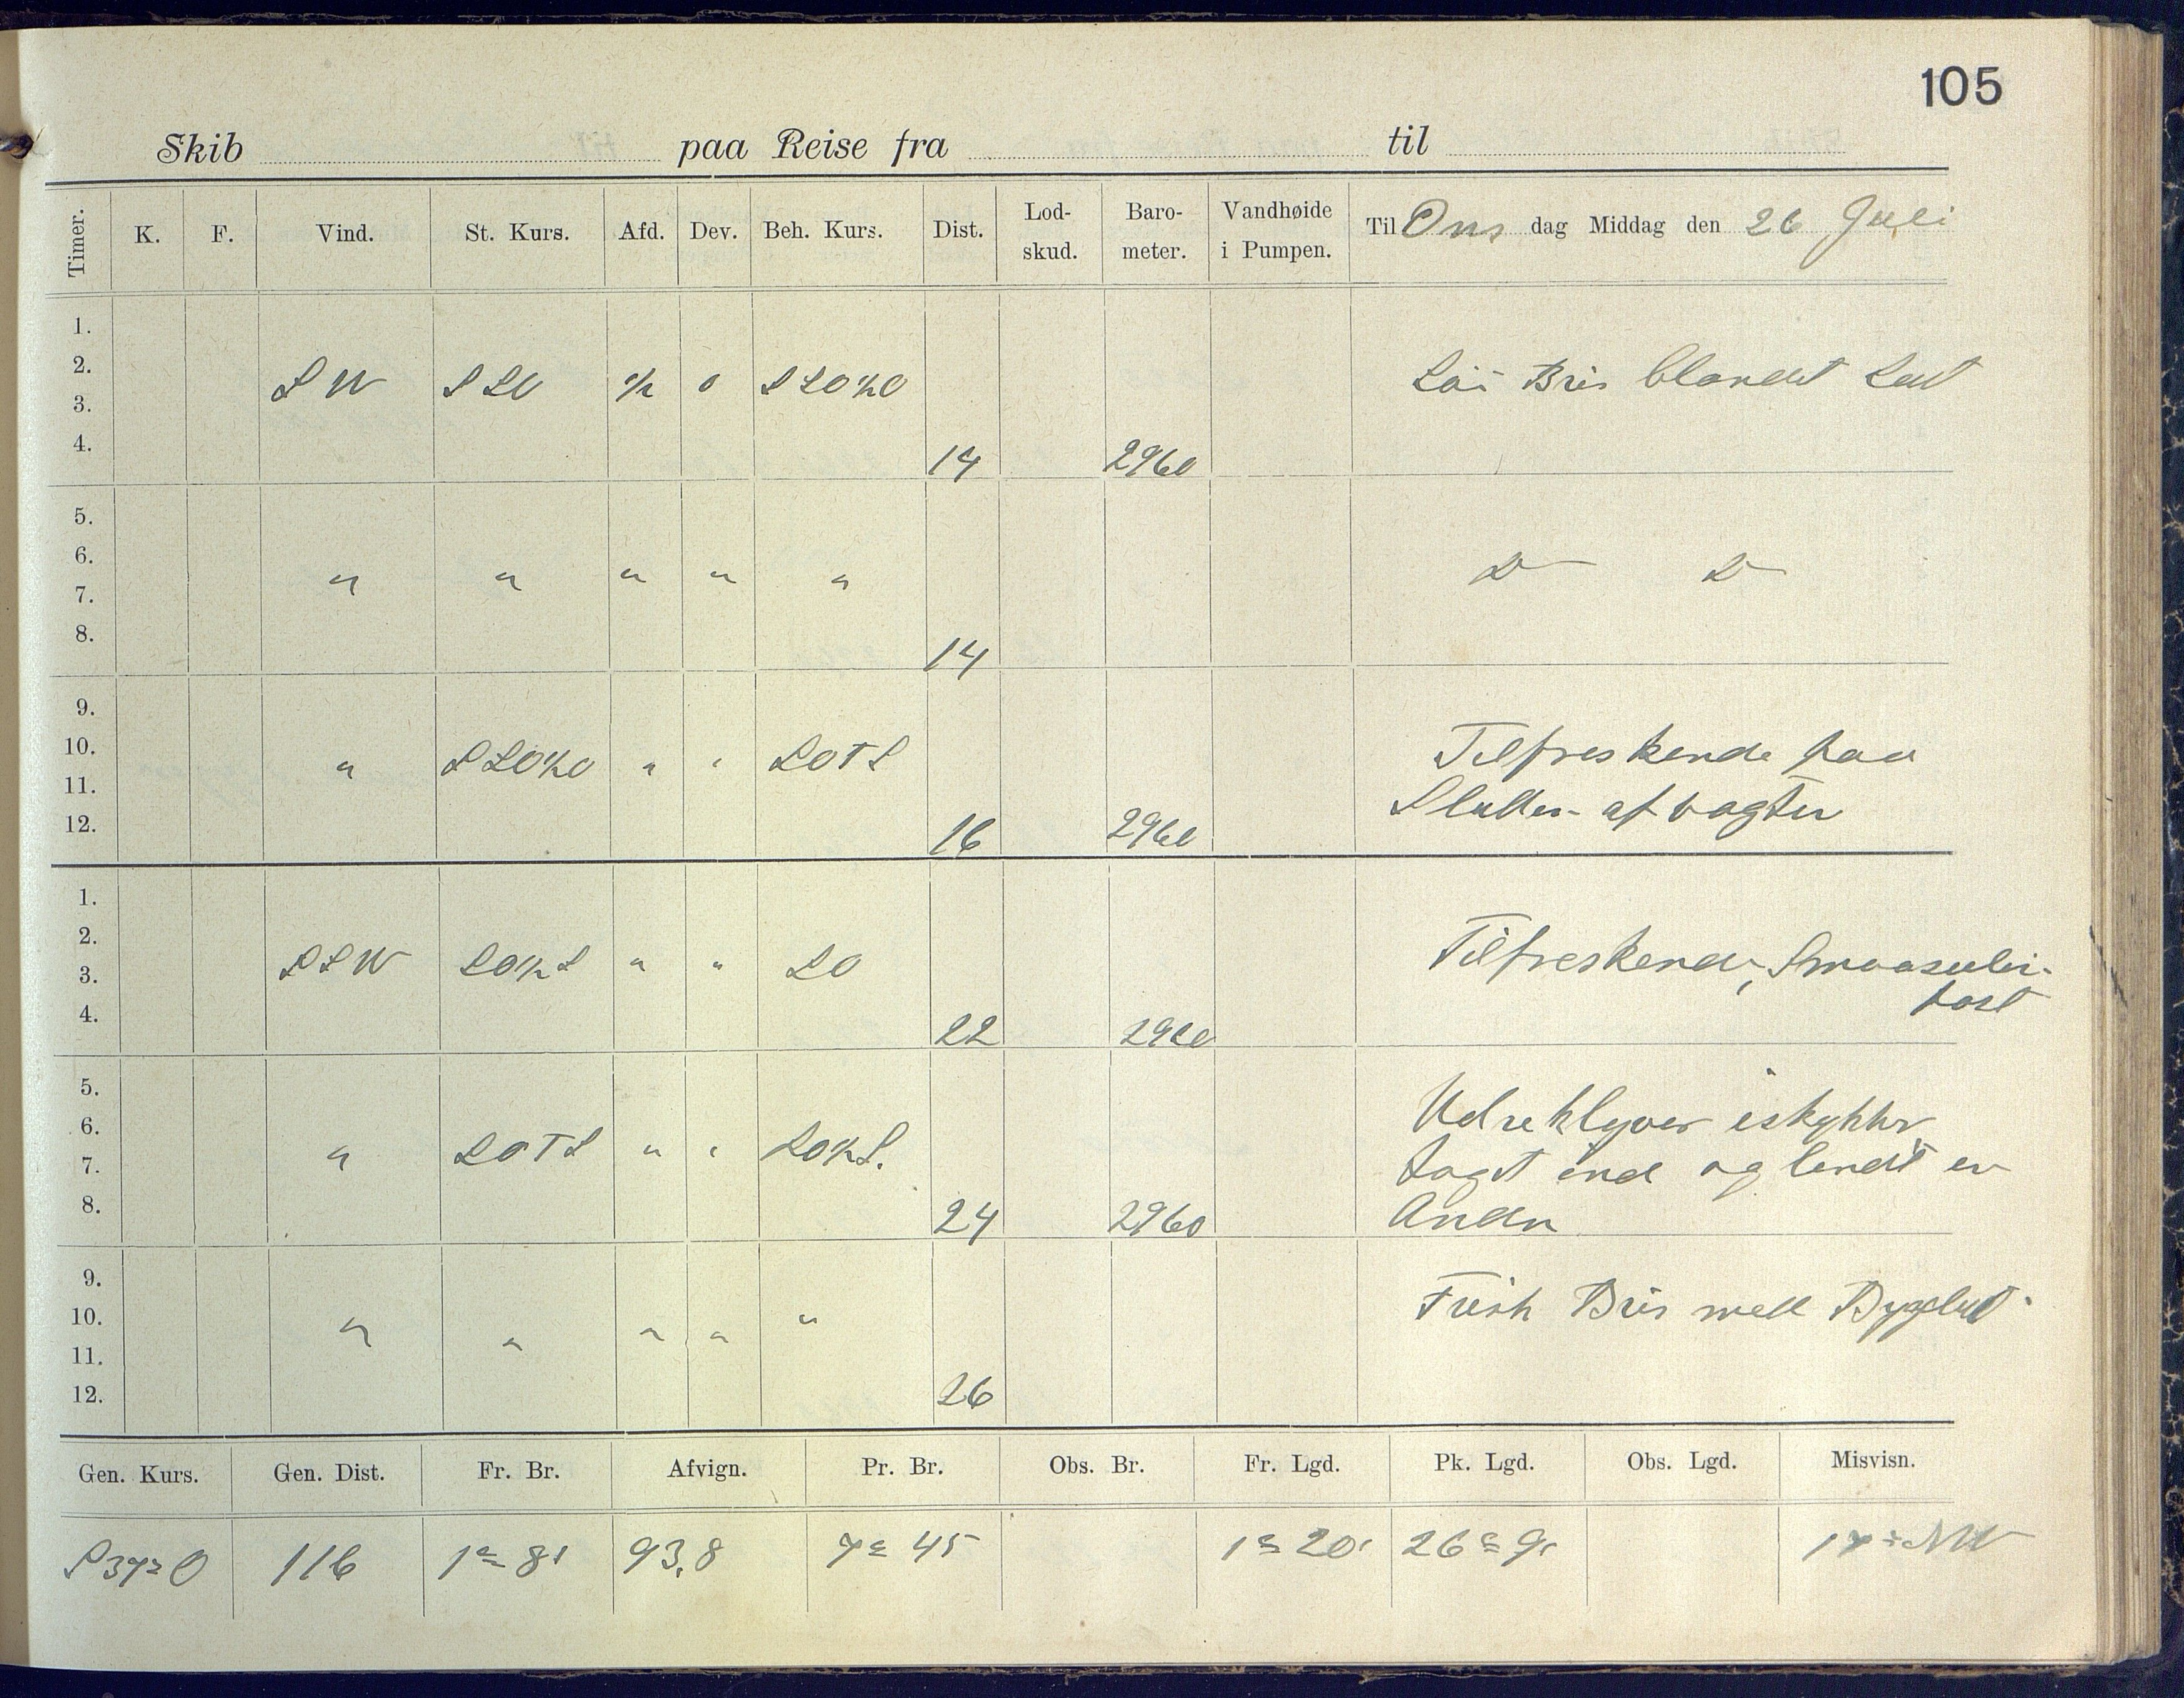 105
Skib paa Reise fra til
Timer. K. F. Vind. St. Kurs. Afd. Dev. Beh. Kurs. Dist. Lod-skud. Baro-meter. Vandhøide i Pumpen. Til Ons dag Middag den 26 Juli
1.
2.
S W SSO ½ 0 SSO½O Bris blandet
3.
4. 14 2960
5.
6.
" " " " " D D
7.
8. 14
9.
10. Tilfreskende paa
" SSO½O " " SOTS
11. af vagten
12. 16 2960
1.
2.
SSW SO½S " " SO Tilfreskende,
3.
4. 22 2960
5.
6.
" SOTS " " SO½S.
7. tagt ind og en
8. 24 2960 Anden
9.
10. Frisk Bris
" " " " "
11.
12. 26
Gen. Kurs. Gen. Dist. Fr. Br. Afvign. Pr. Br. Obs. Br. Fr. Lgd. Pk. Lgd. Obs. Lgd. Misvisn.
S37°O 116 1° 8' 93,8 7° 45 1° 20' 26° 9' 17° NW